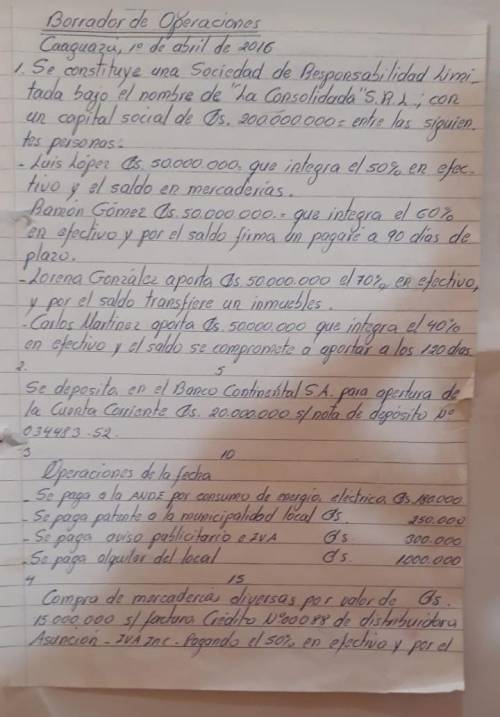 Borrador de Operaciones
Caaguazú, 1º de abril de 2016
1. Se constituye una Sociedad de Responsabilidad Limi-
tada bajo el nombre de "La Consolidada" S.R.L; con
un capital social de Gs. 200.000.000= entre las siguien
tes personas:
- Luis López Gs. 50.000.000= que integra el 50% en efec-
tivo y el saldo en mercaderías.
Ramón Gómez Gs. 50.000.000.= que integra el 60%
en efectivo y por el saldo firma un pagaré a 90 días de
plazo.
- Lorena González aporta Gs 50.000.000 el 70% en efectivo,
y por el saldo transfiere un inmuebles.
- Carlos Martinez aporta Gs. 50.000.000 que integra el 40%
en efectivo y el saldo se compromete a aportar a los 120 días.
2. 5
Se deposita en el Banco Continental S.A. para apertura de
la Cuenta Corriente Gs. 20.000.000 s/ nota de depósito Nº
034483-52.
3 10
Operaciones de la fecha
- Se paga a la ANDE por consumo de energía eléctrica Gs. 180.000
- Se paga patente a la municipalidad local Gs. 250.000
- Se paga aviso publicitario e IVA Gs. 300.000
- Se paga alquiler del local Gs. 1000.000
4 15
Compra de mercaderías diversas por valor de Gs.
15.000.000 s/ factura Crédito Nº00088 de distribuidora
Asunción - IVA Inc. - Pagando el 50% en efectivo y por el